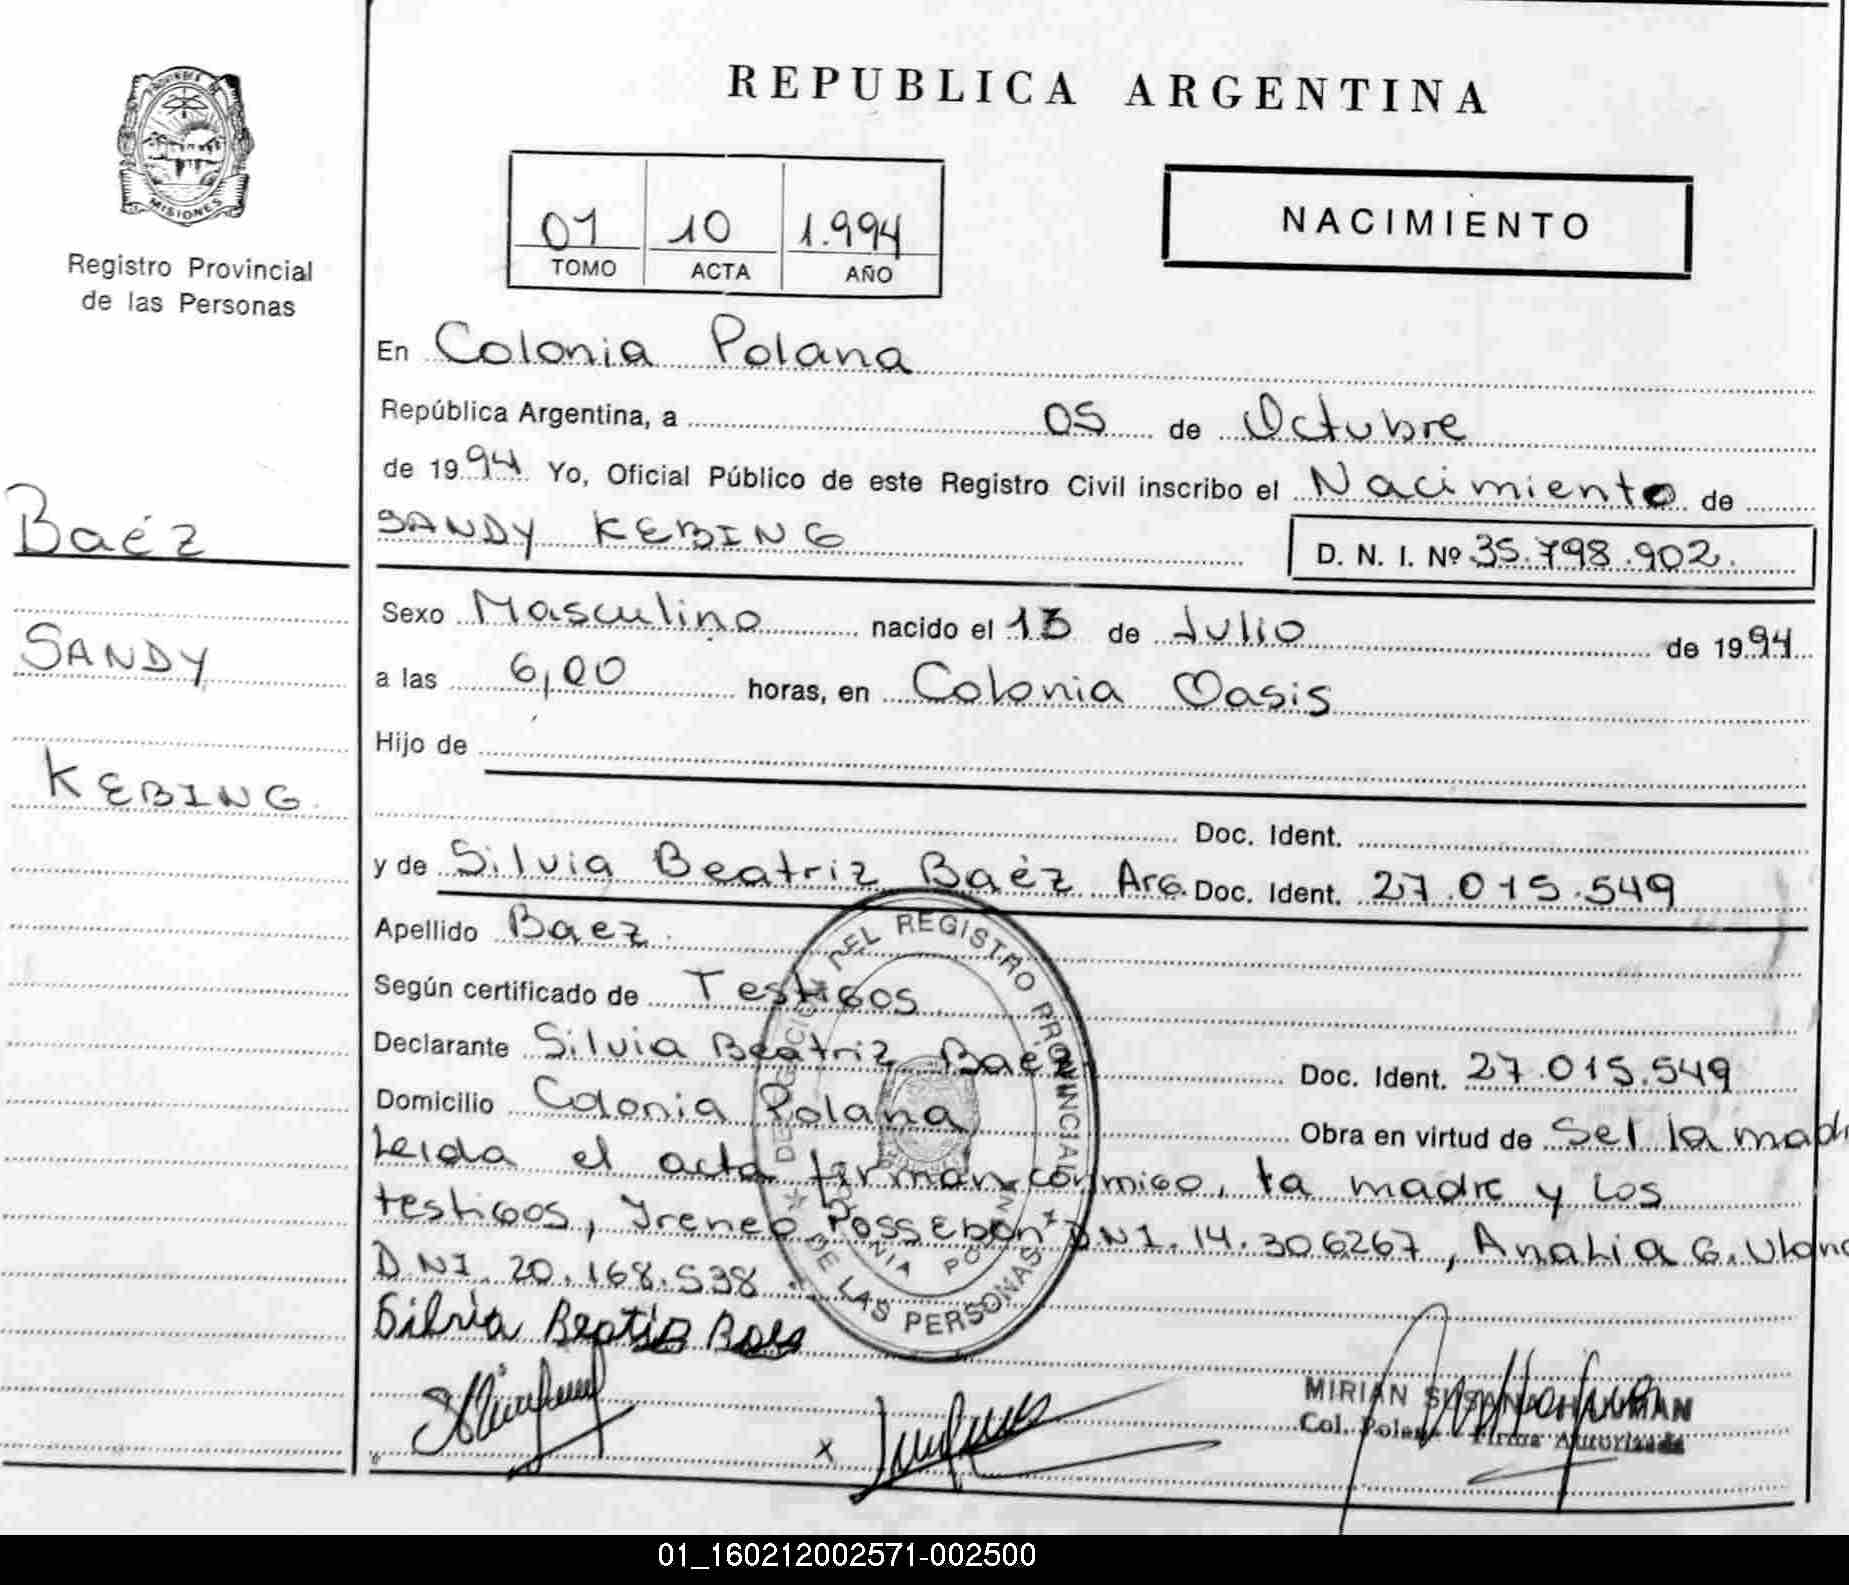 REPUBLICA ARGENTINA
PROVINCIA
MISIONES
Registro Provincial
de las Personas
01 10 1.994
TOMO ACTA AÑO
NACIMIENTO
En Colonia Polana
República Argentina, a 05 de Octubre
de 1994 Yo, Oficial Público de este Registro Civil inscribo el Nacimiento de
SANDY KEBING D. N. I. Nº 35.798.902.
Baéz
SANDY
KEBING
Sexo Masculino nacido el 13 de Julio de 1994
a las 6,00 horas, en Colonia Oasis
Hijo de
Doc. Ident.
y de Silvia Beatriz Baéz Arg. Doc. Ident. 27.015.549
Apellido Baez.
Según certificado de Testigos
Declarante Silvia Beatriz Baéz Doc. Ident. 27.015.549
Domicilio Colonia Polana Obra en virtud de Ser la
Leida el acta firman conmigo, la madre y los
testigos, Ireneo Possebon DNI. 14.306267, Analia G.
DNI. 20.168.538
DELEGACION DEL REGISTRO PROVINCIAL
DE LAS PERSONAS
COLONIA POLANA
Silvia Beatriz Baes
x
MIRIAN SUSANA
Col. Polana - Firma Autorizada
01_160212002571-002500